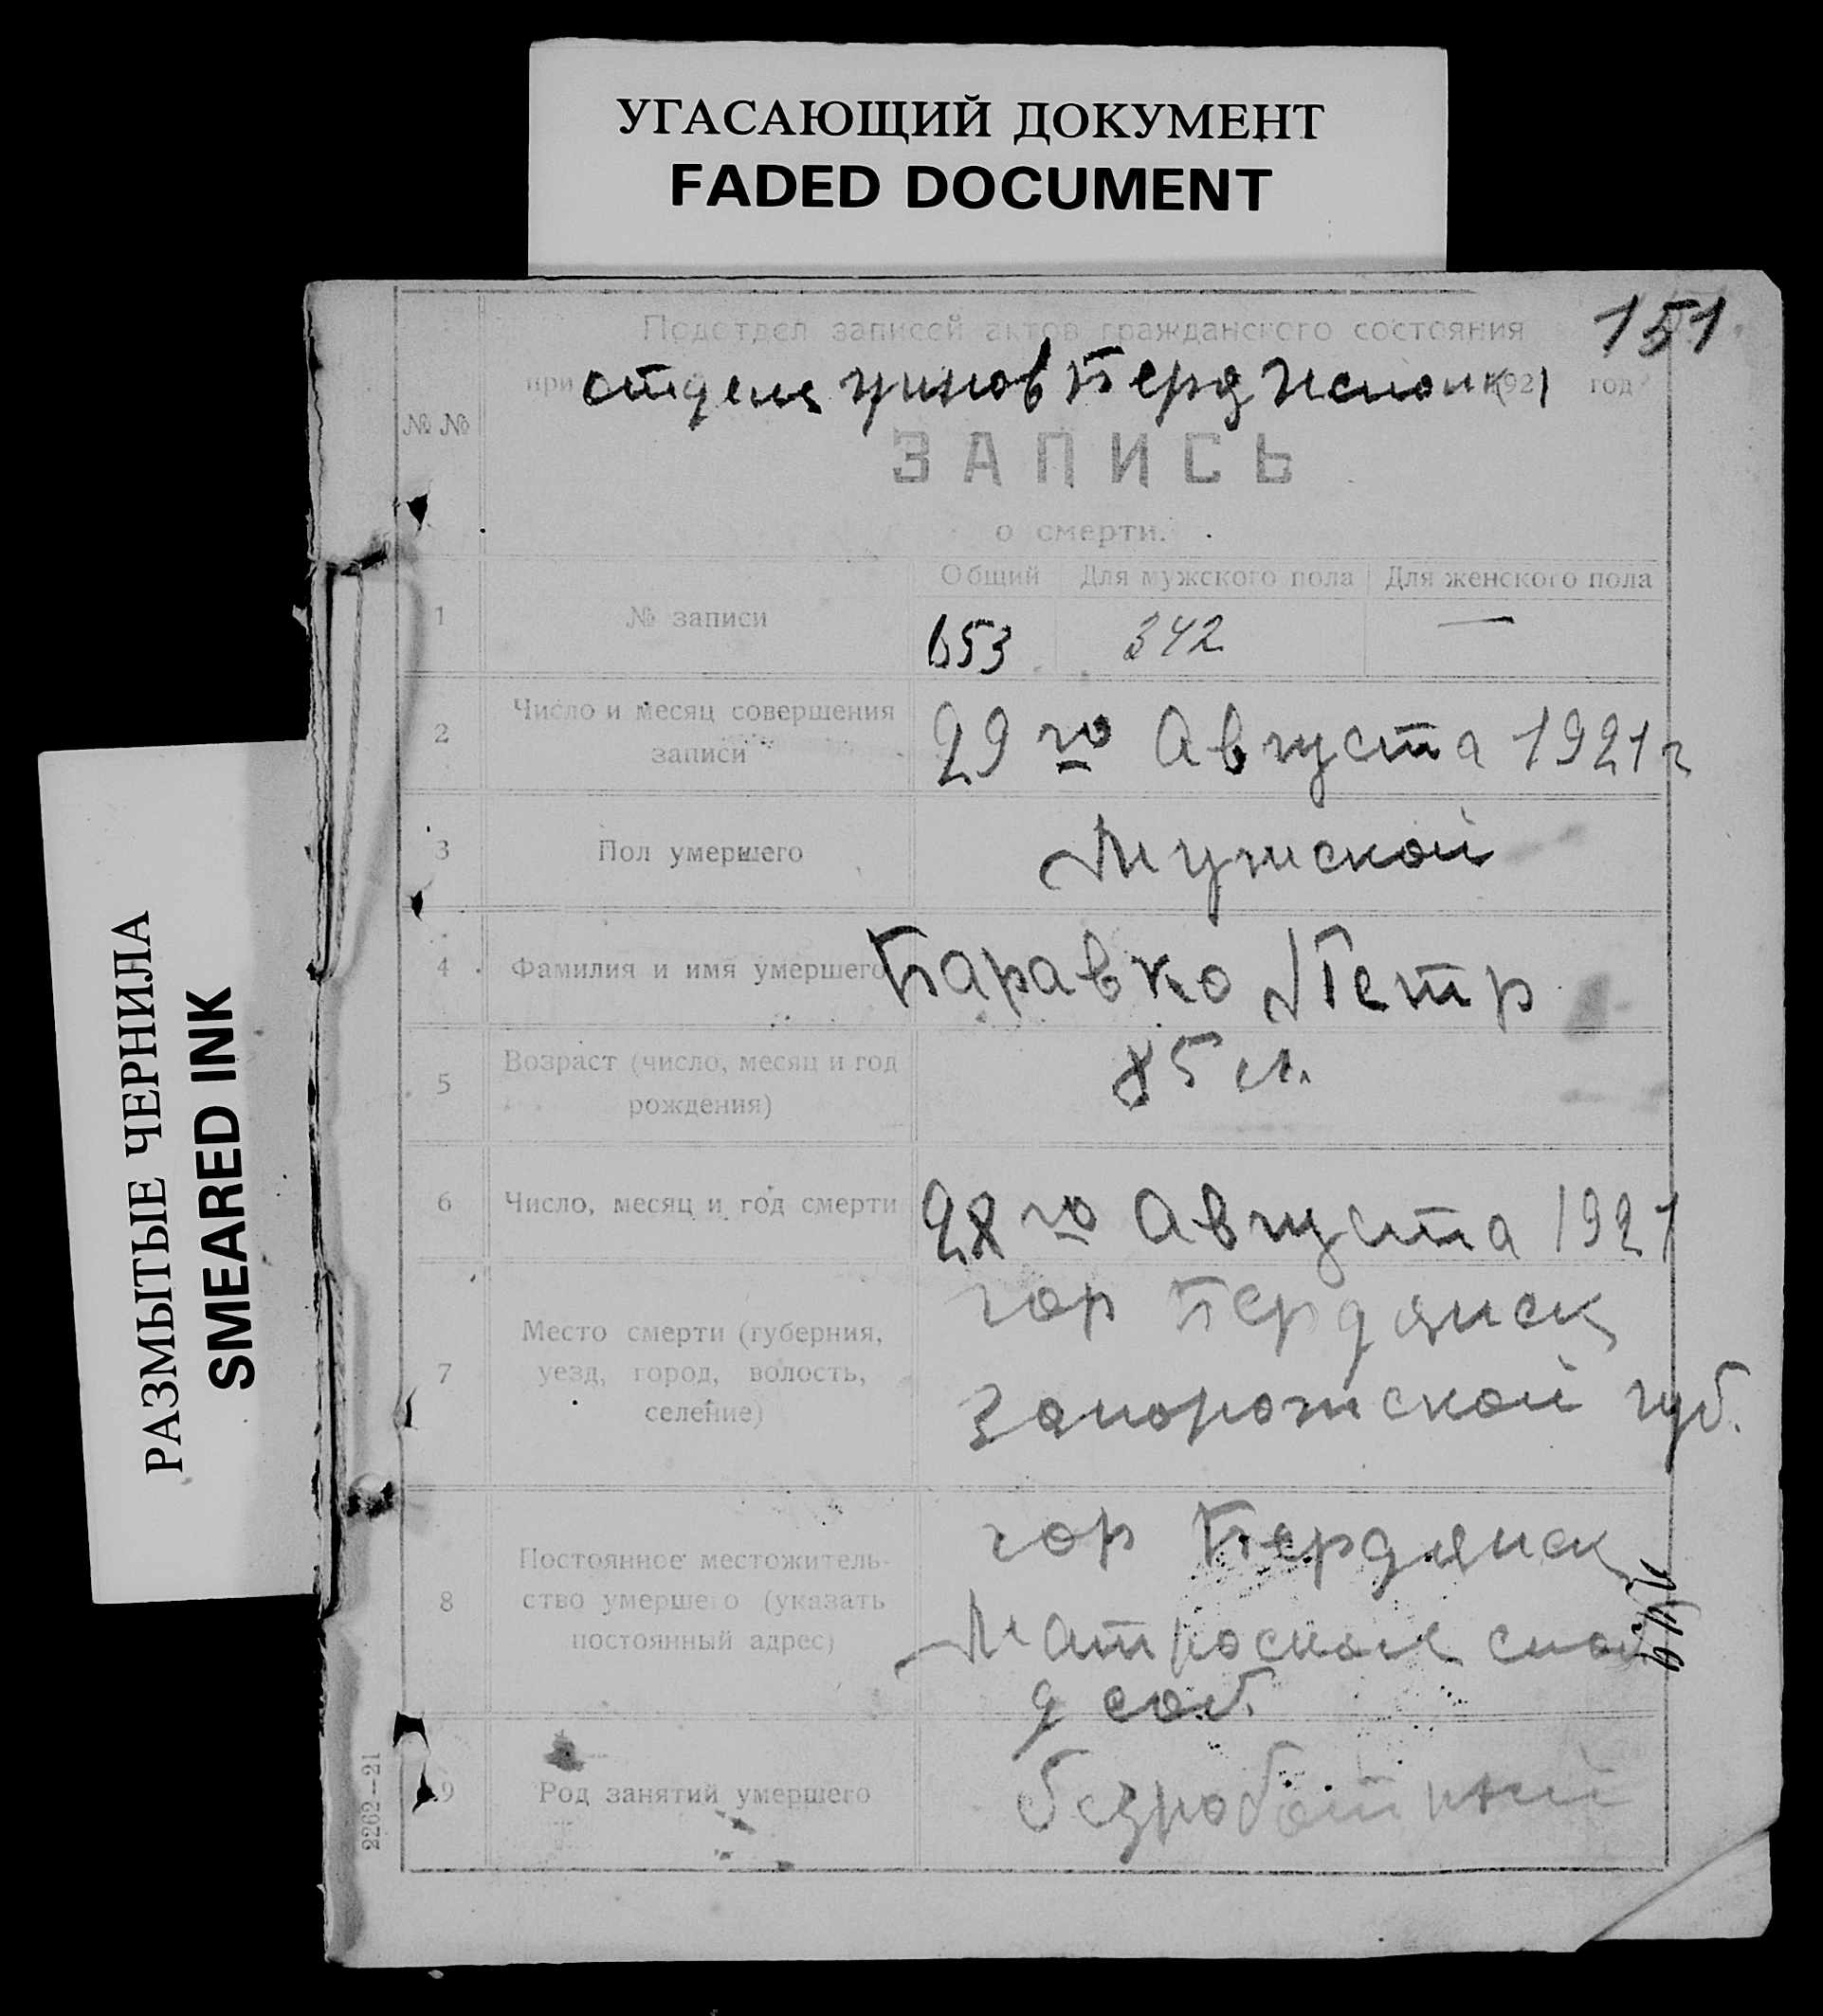 УГАСАЮЩИЙ ДОКУМЕНТ
FADED DOCUMENT
РАЗМЫТЫЕ ЧЕРНИЛА
SMEARED INK
151
Подотдел записей актов гражданского состояния
при отдела Берд Исполк 1921 год
№ №
ЗАПИСЬ
о смерти.
Общий Для мужского пола Для женского пола
1 № записи 653 342 —
2 Число и месяц совершения
записи 29 го Августа 1921 г
3 Пол умершего Мужской
4 Фамилия и имя умершего Баравко Петр
5 Возраст (число, месяц и год
рождения) 85 л.
6 Число, месяц и год смерти 28 го Августа 1921
7 Место смерти (губерния,
уезд, город, волость,
селение)
гор Бердянск
Запорожской губ.
8 Постоянное местожитель-
ство умершего (указать
постоянный адрес)
гор Бердянск
д соб.
9 Род занятий умершего безработный
2262—21